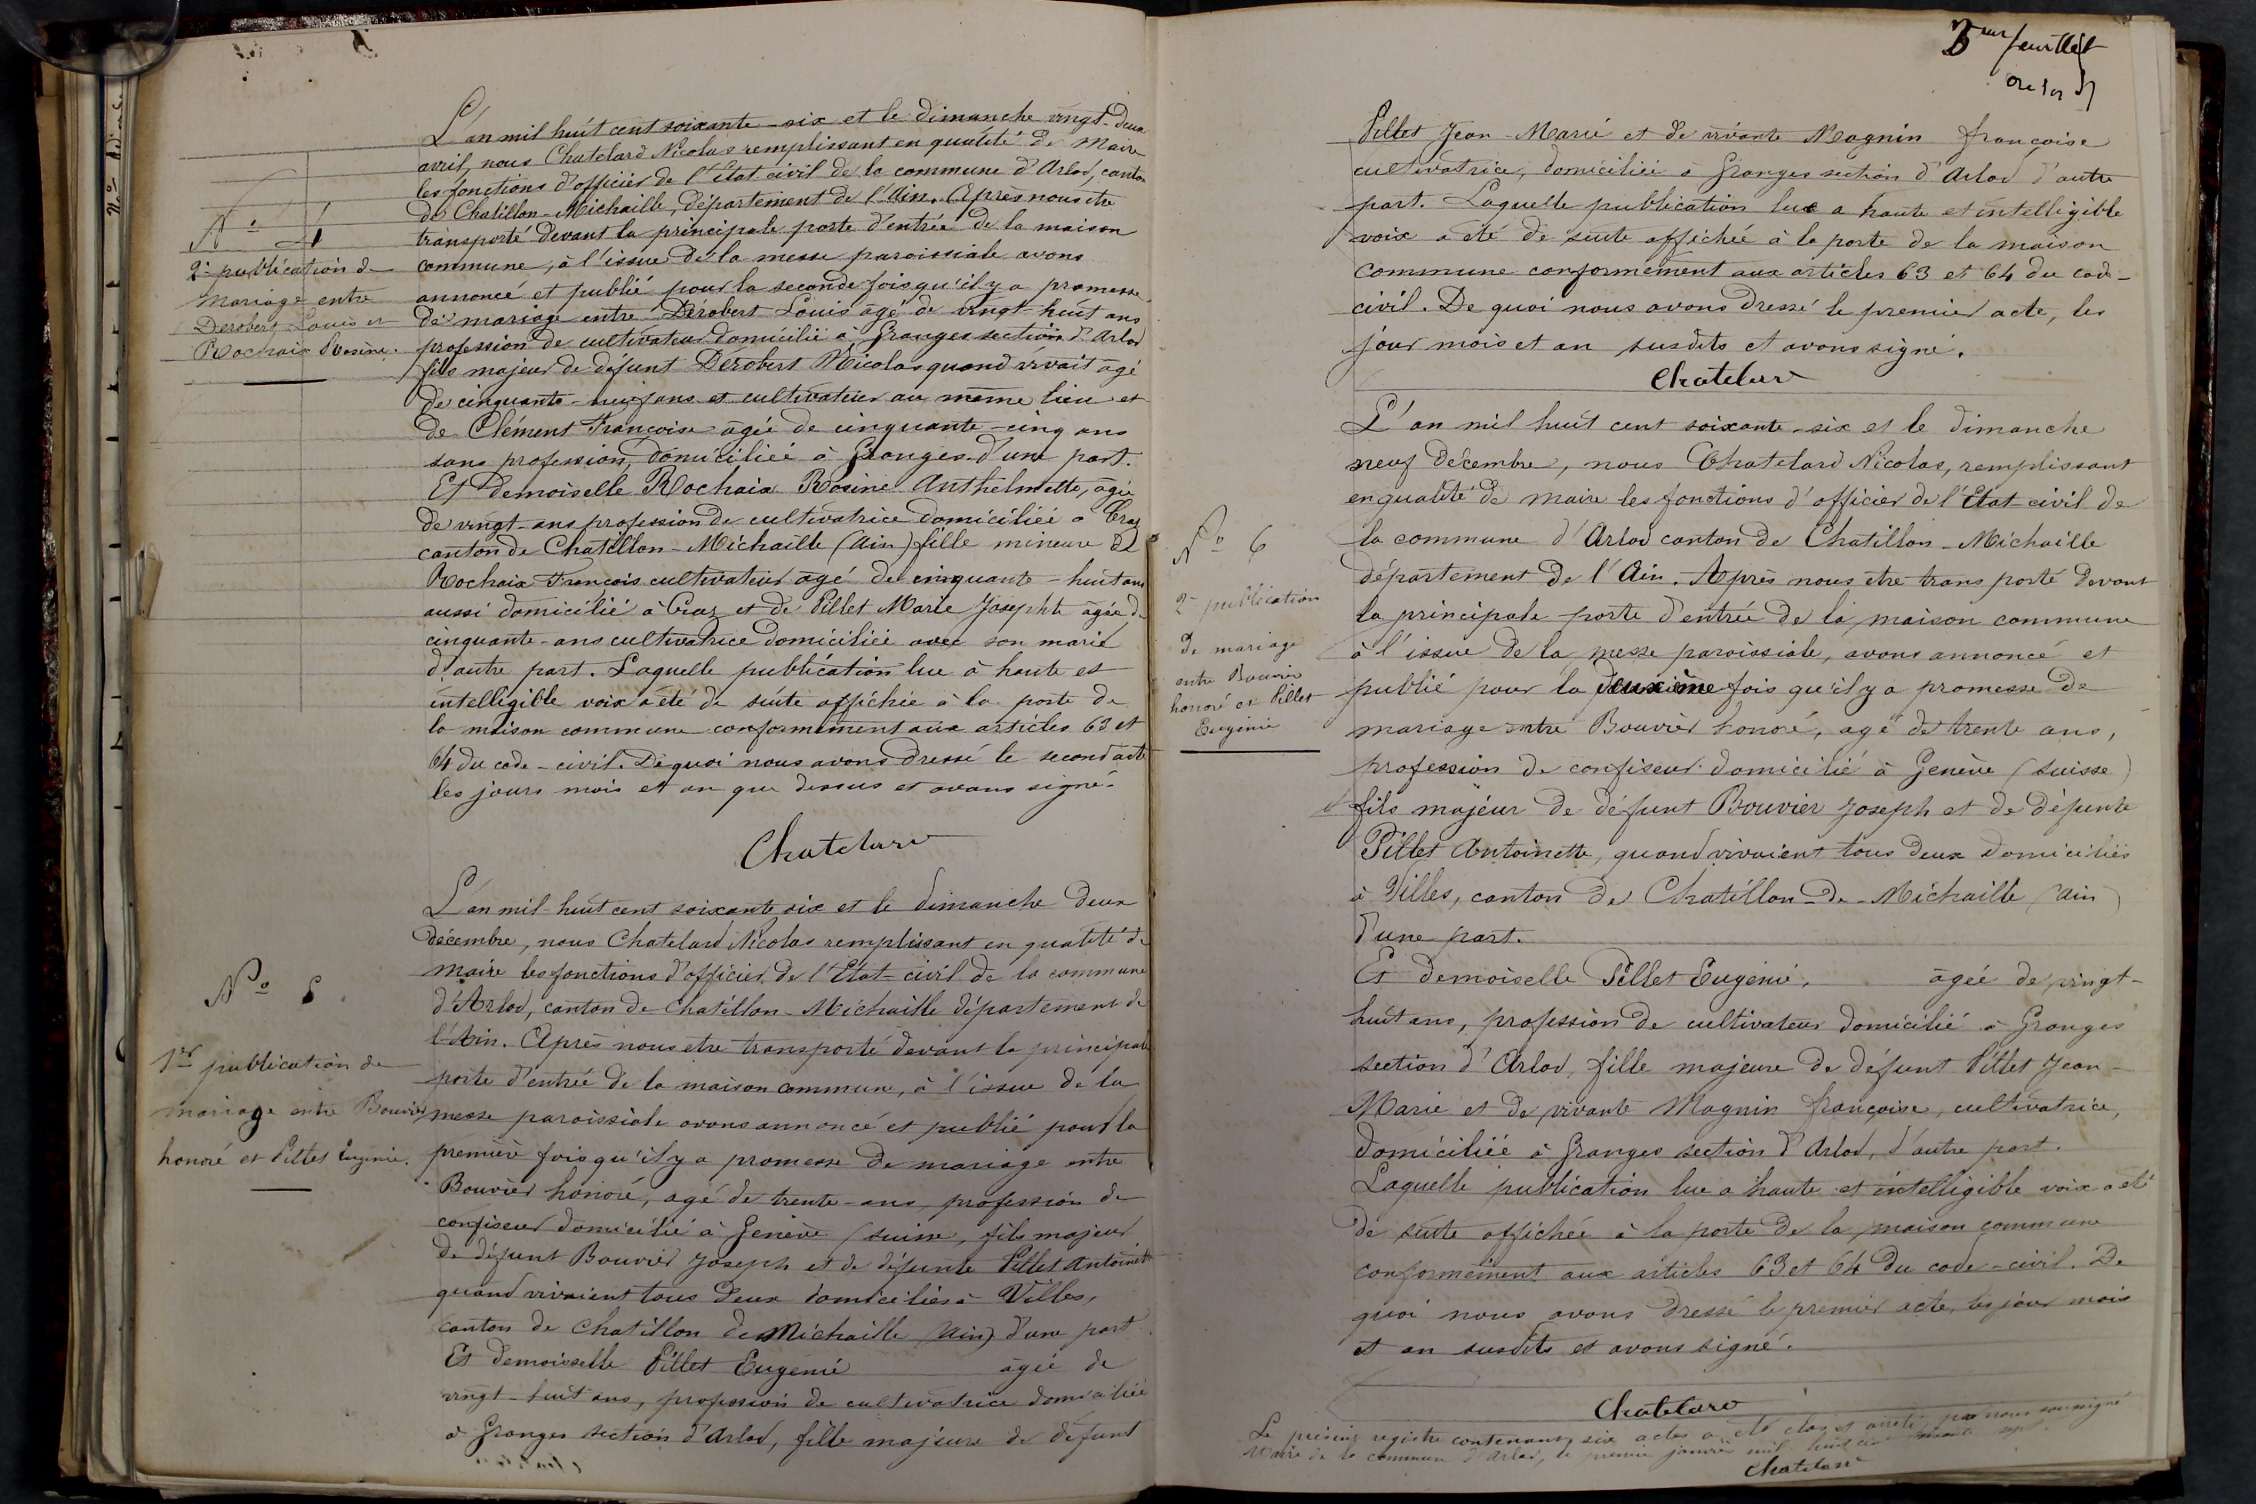 N° 4
2e publication de
mariage entre
Derobert Louis et
Rochaix Rosine.
L'an mil huit cent soixante-six et le dimanche vingt-deux
avril, nous Chatelard Nicolas remplissant en qualité de Maire
les fonctions d'officier de l'État civil de la commune d'Arlod, canton
de Chatillon-Michaille, département de l'Ain. Après nous etre
transporté devant la principale porte d'entrée de la maison
commune, à l'issue de la messe paroissiale avons
annoncé et publié pour la seconde fois qu'il y a promesse
de mariage entre Dérobert Louis âgé de vingt-huit ans
profession de cultivateur domicilié à Granges section d'Arlod
fils majeur de défunt Dérobert Nicolas quand vivait âgé
de cinquante-neuf ans et cultivateur au même lieu et
de Clément Françoise âgée de cinquante-cinq ans
sans profession, domiciliée à Granges d'une part.
Et Demoiselle Rochaix Rosine Anthelmette, âgée
de vingt-ans profession de cultivatrice domiciliée à Craz
canton de Chatillon-Michaille (Ain) fille mineure de
Rochaix François cultivateur âgé de cinquante-huit ans
aussi domicilié à Craz et de Pillet Marie Josephte âgée de
cinquante-ans cultivatrice domiciliée avec son marié
d'autre part. Laquelle publication lue à haute et
intelligible voix a été de suite affichée à la porte de
la maison commune conformément aux articles 63 et
64 du code-civil. De quoi nous avons dressé le second acte
les jours mois et an que dessus et avons signé.
Chatelard
N° 5
1re publication de
mariage entre Bouvier
honoré et Pillet Eugénie.
L'an mil-huit cent soixante six et le dimanche deux
décembre, nous Chatelard Nicolas remplissant en qualité de
maire les fonctions d'officier de l'Etat-civil de la commune
d'Arlod, canton de Chatillon-Michaille département de
l'Ain. Après nous etre transporté devant la principale
porte d'entrée de la maison commune, à l'issue de la
messe paroissiale avons annoncé et publié pour la
première fois qu'il y a promesse de mariage entre
Bouvier honoré, agé de trente-ans, profession de
confiseur domicilié à Genève (suisse, fils majeur
de défunt Bouvier Joseph et de défunte Pillet Antoinette
quand vivaient tous deux domiciliés à Villes,
canton de Chatillon de Michaille (Ain) d'une part.
Et demoiselle Pillet Eugénie âgée de
vingt-huit ans, profession de cultivatrice domiciliée
à Granges section d'Arlod, fille majeure de défunt
3me feuillet
Pillet Jean-Marie et de vivante Magnin françoise
cultivatrice, domiciliée à Granges section d'Arlod d'autre
part. Laquelle publication lue a haute et intelligible
voix a été de suite affichée à la porte de la maison
commune conformément aux articles 63 et 64 du code-
civil. De quoi nous avons dressé le premier acte, les
jour mois et an susdits et avons signé.
Chatelard
N° 6
2e publication
de mariage
entre Bouvier
honoré et Pillet
Eugénie
L'an mil huit cent soixante-six et le dimanche
neuf décembre, nous Chatelard Nicolas, remplissant
en qualité de maire les fonctions d'officier de l'État-civil de
la commune d'Arlod canton de Chatillon-Michaille
département de l'Ain. Après nous etre transporté devant
la principale porte d'entrée de la maison commune
à l'issue de la messe paroissiale, avons annoncé et
publié pour la deuxième fois qu'il y a promesse de
mariage entre Bouvier honoré, agé de trente ans,
profession de confiseur domicilié à Genève (suisse)
fils majeur de défunt Bouvier Joseph et de défunte
Pillet Antoinette, quand vivaient tous deux domiciliés
à Villes, canton de Chatillon-de-Michaille (Ain)
d'une part.
Et demoiselle Pillet Eugénie, âgée de vingt-
huit ans, profession de cultivateur domicilié à Granges
section d'Arlod, fille majeure de défunt Pillet Jean-
Marie et de vivante Magnin françoise, cultivatrice,
domiciliée à Granges section d'Arlod, d'autre part.
Laquelle publication lue a haute et intelligible voix a été
de suite affichée à la porte de la maison commune
conformément aux articles 63 et 64 du code-civil. De
quoi nous avons dressé le premier acte, les jour mois
et an susdits et avons signé.
Chatelard
Le présent registre contenant six actes a été clos et arrêté par nous soussigné
Maire de la commune d'Arlod, le premier janvier mil huit cent soixante sept.
Chatelard